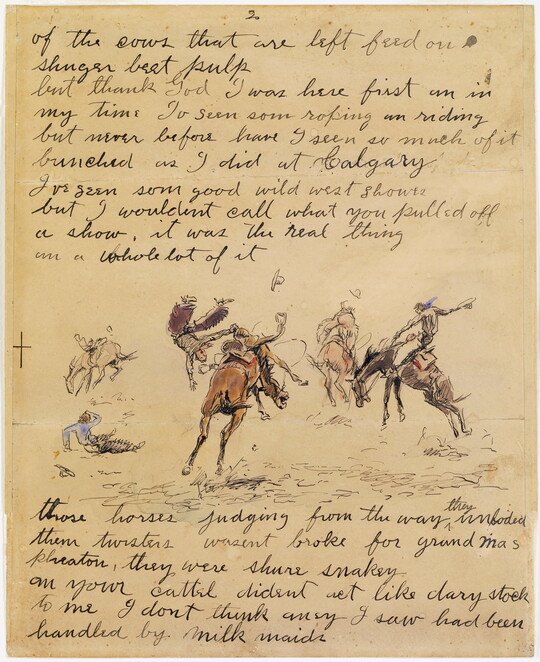 2
of the cows that are left feed on
shuger beet pulp
but thank God I was here first an in
my time Iv seen som roping an riding
but never before have I seen so much of it
bunched as I did at Calgary
I've seen som good wild west showes
but I wouldent call what you pulled off
a show, it was the real thing
an a whole lot of it
those horses judging from the way they unloded
them twisters wasent broke for grand mas
pheaton, they were shure snakey
an your cattel dident act like dary stock
to me I dont think aney I saw had been
handled by milk maids